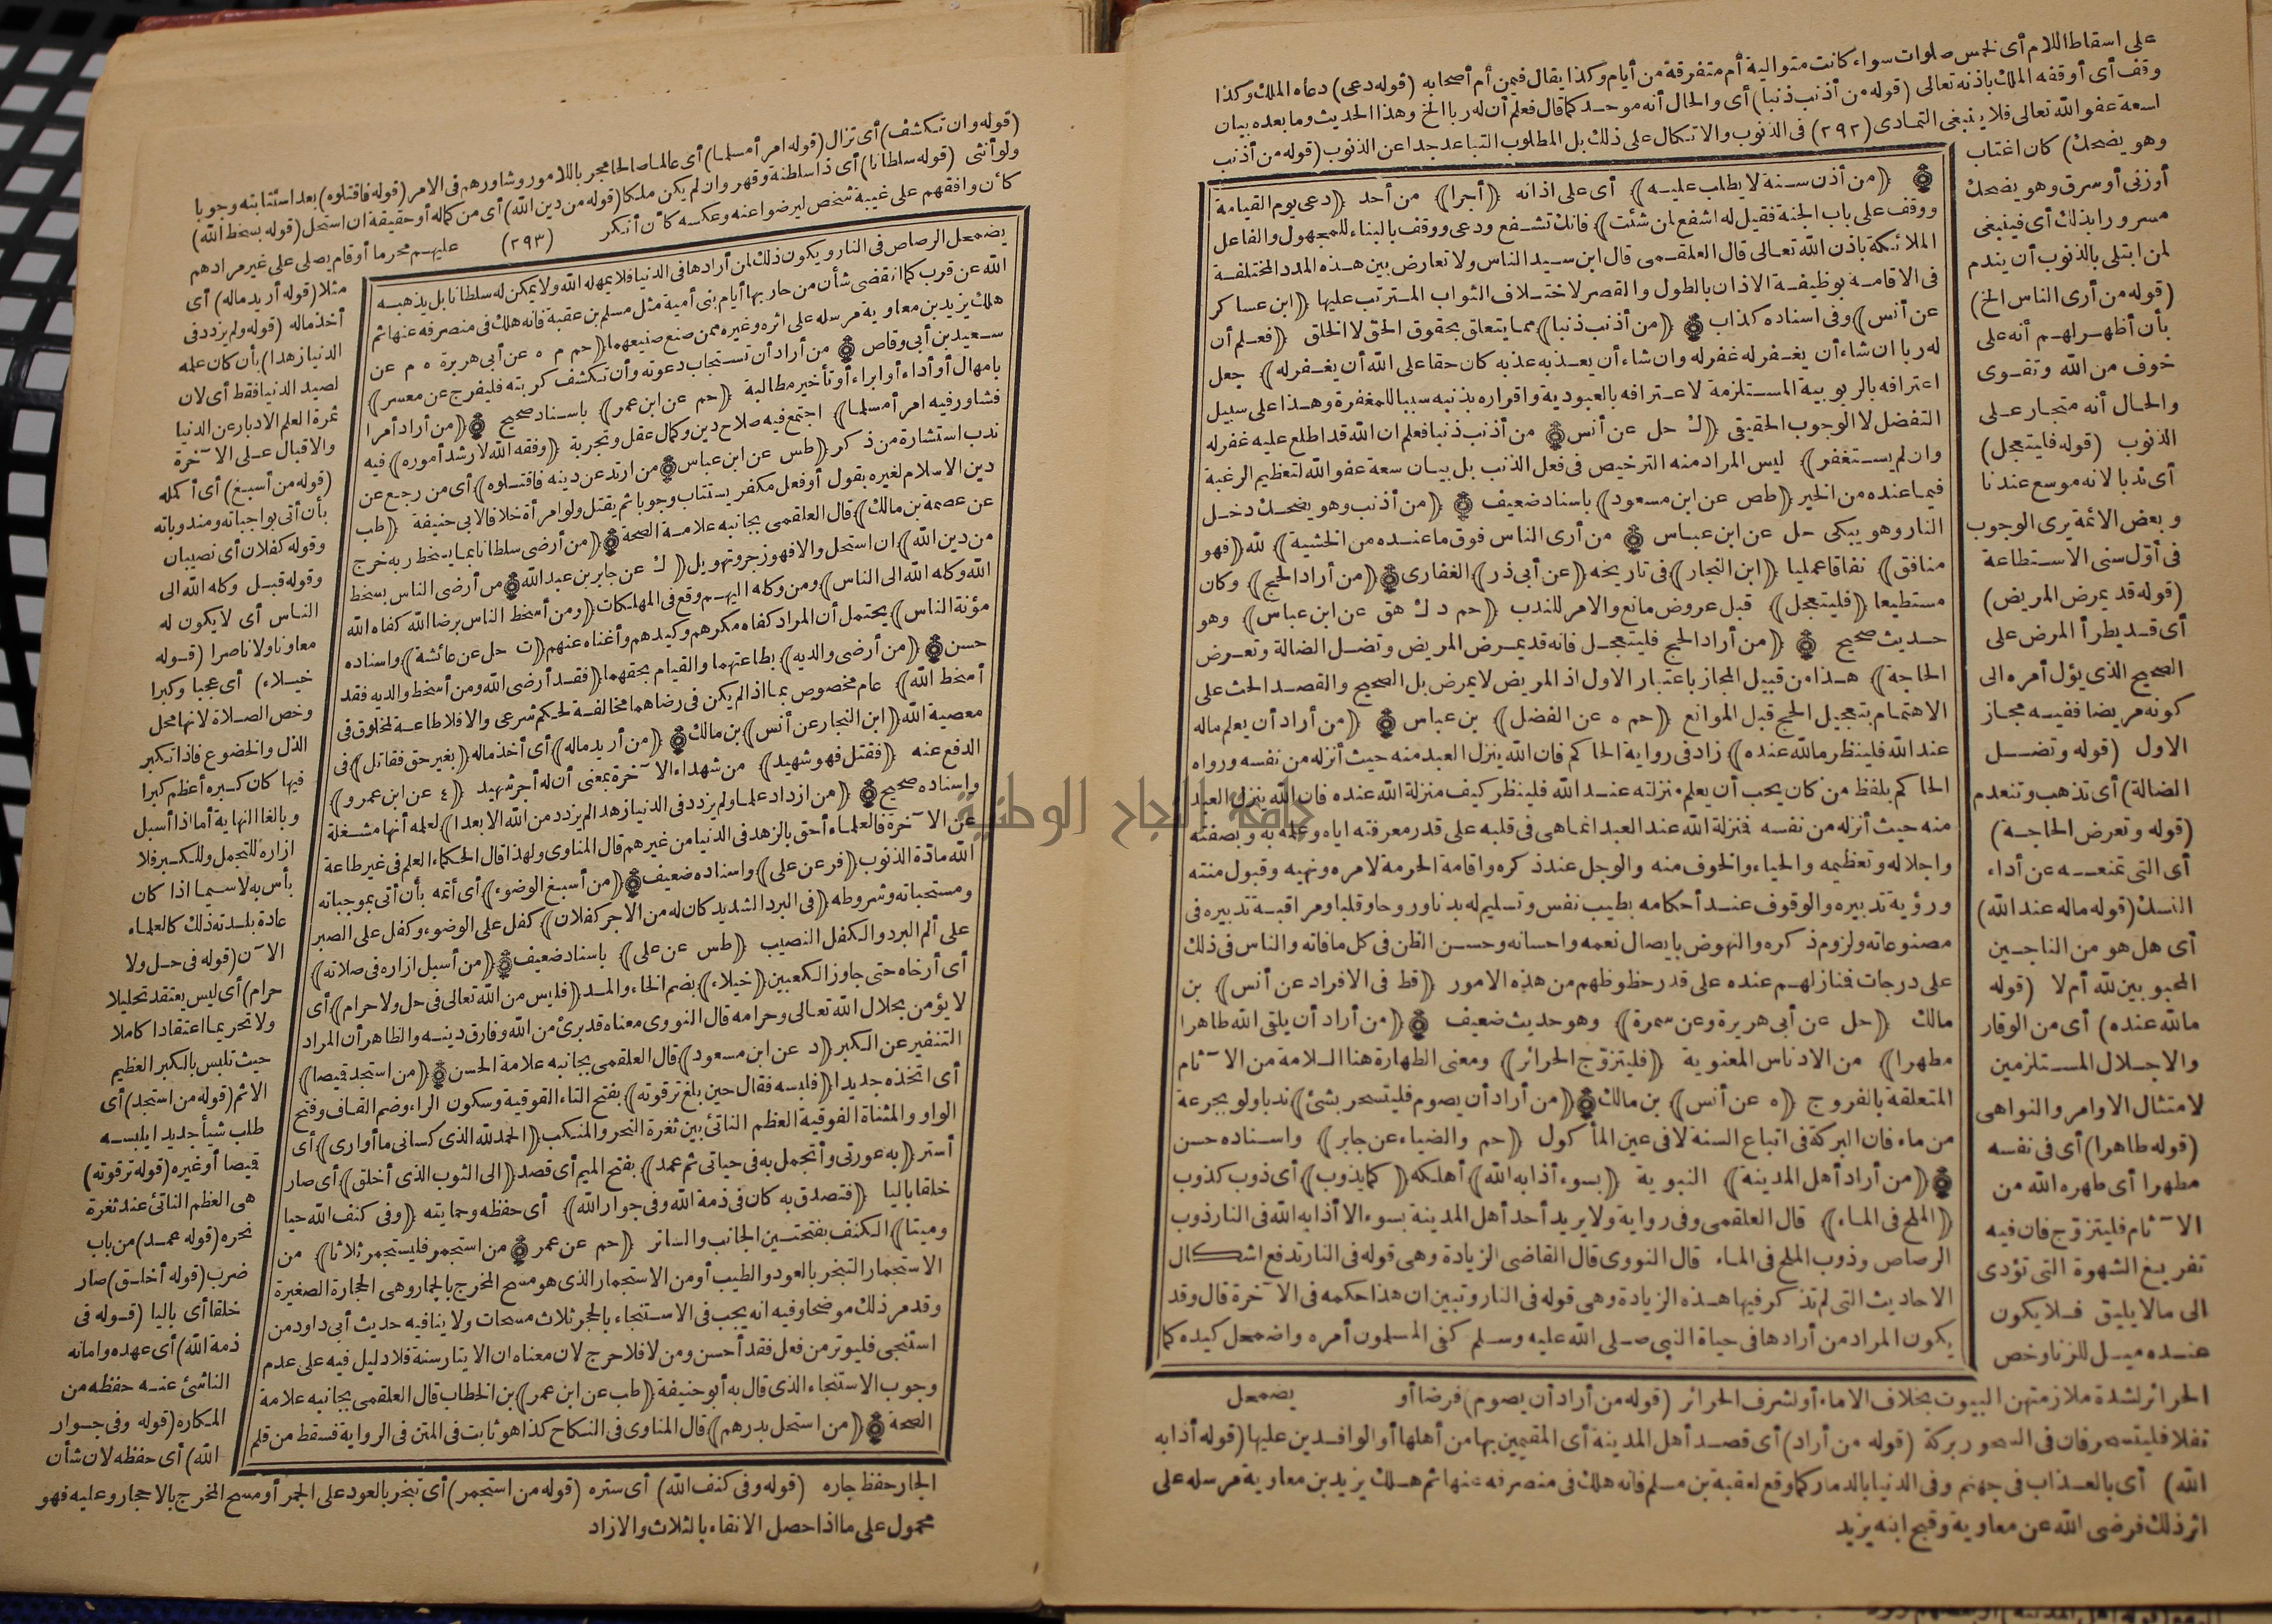 على اسقاط اللام أى لخمس صلوات سواء كانت متوالية أم متفرقة من أيام وكذا يقال فيمن أم أصحابه (قوله دعى) دعاه الملك وكذا
وقف أى أوقفه الملك باذنه تعالى (قوله من أذنب ذنبا) أى والحال أنه موحد كما قال فعلم أن له ربا الخ وهذا الحديث وما بعده بيان
لسعة عفو الله تعالى فلا ينبغى التمادى (٢٩٢) فى الذنوب والاتكال على ذلك بل المطلوب التباعد جدا عن الذنوب (قوله من أذنب
وهو يضحك) كان اغتاب
أو زنى أو سرق وهو يضحك
مسرورا بذلك أى فينبغى
لمن ابتلى بالذنوب أن يندم
(قوله من أرى الناس الخ)
بأن أظهر لهم أنه على
خوف من الله وتقوى
والحال أنه متجار على
الذنوب (قوله فليتعجل)
أى ندبا لانه موسع عندنا
وبعض الائمة يرى الوجوب
فى أول سنى الاستطاعة
(قوله قد يمرض المريض)
أى قد يطرأ المرض على
الصحيح الذى يؤل أمره الى
كونه مريضا ففيه مجاز
الاول (قوله وتضل
الضالة) أى تذهب وتنعدم
(قوله وتعرض الحاجة)
أى التى تمنعه عن أداء
النسك (قوله ماله عند الله)
أى هل هو من الناجين
المحبوبين لله أم لا (قوله
مالله عنده) أى من الوقار
والاجلال المستلزمين
لامتثال الاوامر والنواهى
(قوله طاهرا) أى فى نفسه
مطهرا أى طهره الله من
الآثام فليتزوج فان فيه
تفريغ الشهوة التى تؤدى
الى مالا يليق فلا يكون
عنده ميل للزنا وخص
۞ (من أذن سنة لا يطلب عليه) أى على اذانه (أجرا) من أحد (دعى يوم القيامة
ووقف على باب الجنة فقيل له اشفع لمن شئت) فانك تشفع ودعى ووقف بالبناء للمجهول والفاعل
الملائكة باذن الله تعالى قال العلقمى قال ابن سيد الناس ولا تعارض بين هذه المدد المختلفة
فى الاقامة بوظيفة الاذان بالطول والقصر لاختلاف الثواب المترتب عليها (ابن عساكر
عن أنس) وفى اسناده كذاب ۞ (من أذنب ذنبا) مما يتعلق بحقوق الحق لا الخلق (فعلم أن
له ربا ان شاء أن يغفر له غفر له وان شاء أن يعذبه عذبه كان حقا على الله أن يغفر له) جعل
اعترافه بالربوبية المستلزمة لاعترافه بالعبودية واقراره بذنبه سببا للمغفرة وهذا على سبيل
التفضل لا الوجوب الحقيقى (ك حل عن أنس ۞ من أذنب ذنبا فعلم ان الله قد اطلع عليه غفر له
وان لم يستغفر) ليس المراد منه الترخيص فى فعل الذنب بل بيان سعة عفو الله لتعظيم الرغبة
فيما عنده من الخير (طص عن ابن مسعود) باسناد ضعيف ۞ (من أذنب وهو يضحك دخل
النار وهو يبكى حل عن ابن عباس ۞ من أرى الناس فوق ما عنده من الخشية) لله (فهو
منافق) نفاقا عمليا (ابن النجار) فى تاريخه (عن أبى ذر) الغفارى ۞ (من أراد الحج) وكان
مستطيعا (فليتعجل) قبل عروض مانع والامر للندب (حم د ك هق عن ابن عباس) وهو
حديث صحيح ۞ (من أراد الحج فليتعجل فانه قد يمرض المريض وتضل الضالة وتعرض
الحاجة) هذا من قبيل المجاز باعتبار الاول اذ المريض لا يمرض بل الصحيح والقصد الحث على
الاهتمام بتعجيل الحج قبل الموانع (حم ه عن الفضل) بن عباس ۞ (من أراد أن يعلم ماله
عند الله فلينظر مالله عنده) زاد فى رواية الحاكم فان الله ينزل العبد منه حيث أنزله من نفسه ورواه
الحاكم بلفظ من كان يحب أن يعلم منزلته عند الله فلينظر كيف منزلة الله عنده فان الله ينزل العبد
منه حيث أنزله من نفسه فنزلة الله عند العبد انما هى فى قلبه على قدر معرفته اياه وعلمه به وبصفته
واجلاله وتعظيمه والحياء والخوف منه والوجل عند ذكره واقامة الحرمة لامره ونهيه وقبول منته
ورؤية تدبيره والوقوف عند أحكامه بطيب نفس وتسليم له بدنا وروحا وقلبا ومراقبة تدبيره فى
مصنوعاته ولزوم ذكره والنهوض بايصال نعمه واحسانه وحسن الظن فى كل ما فاته والناس فى ذلك
على درجات فنازلهم عنده على قدر حظوظهم من هذه الامور (قط فى الافراد عن أنس) بن
مالك (حل عن أبى هريرة وعن سمرة) وهو حديث ضعيف ۞ (من أراد أن يلقى الله طاهرا
مطهرا) من الادناس المعنوية (فليتزوج الحرائر) ومعنى الطهارة هنا السلامة من الآثام
المتعلقة بالفروج (ه عن أنس) بن مالك ۞ (من أراد أن يصوم فليتسحر بشئ) ندبا ولو بجرعة
من ماء فان البركة فى اتباع السنة لا فى عين المأكول (حم والضياء عن جابر) واسناده حسن
۞ (من أراد أهل المدينة) النبوية (بسوء أذابه الله) أهلكه (كما يذوب) أى ذوب كذوب
(الملح فى الماء) قال العلقمى وفى رواية ولا يريد أحد أهل المدينة بسوء الا أذابه الله فى النار ذوب
الرصاص وذوب الملح فى الماء قال النووى قال القاضى الزيادة وهى قوله فى النار تدفع اشكال
الاحاديث التى لم تذكر فيها هذه الزيادة وهى قوله فى النار وتبين ان هذا حكمه فى الآخرة قال وقد
يكون المراد من أرادها فى حياة النبى صلى الله عليه وسلم كفى المسلمون أمره واضمحل كيده كما
الحرائر لشدة ملازمتهن البيوت بخلاف الاماء أو لشرف الحرائر (قوله من أراد أن يصوم) فرضا أو يضمحل
نفلا فليتسحر فان فى السحور بركة (قوله من أراد) أى قصد أهل المدينة أى المقيمين بها من أهلها أو الوافدين عليها (قوله أذابه
الله) أى بالعذاب فى جهنم وفى الدنيا بالدمار كما وقع لعقبة بن مسلم فانه هلك فى منصرفه عنها ثم هلك يزيد بن معاوية مرسله على
اثر ذلك فرضى الله عن معاوية وقبح ابنه يزيد
(قوله وان تكشف) أى تزال (قوله امرأ مسلما) أى عالما صالحا مجربا للامور وشاورهم فى الامر (قوله فاقتلوه) بعد استتابته وجوبا
ولو أنثى (قوله سلطانا) أى ذا سلطنة وقهر وان لم يكن ملكا (قوله من دين الله) أى من كماله أو حقيقة ان استحل (قوله بسخط الله)
كأن وافقهم على غيبة شخص ليرضوا عنه وعكسه كأن أنكر (٢٩٣) عليهم محرما أو قام يصلى على غير مرادهم
مثلا (قوله أريد ماله) أى
أخذ ماله (قوله ولم يزدد فى
الدنيا زهدا) بأن كان علمه
لصيد الدنيا فقط أى لان
ثمرة العلم الادبار عن الدنيا
والاقبال على الآخرة
(قوله من أسبغ) أى أكمله
بأن أتى بواجباته ومندوباته
وقوله كفلان أى نصيبان
وقوله قبل وكله الله الى
الناس أى لا يكون له
معاونا ولا ناصرا (قوله
خيلاء) أى عجبا وكبرا
وخص الصلاة لانها محل
الذل والخضوع فاذا تكبر
فيها كان كبره أعظم كبرا
وبالغا النهاية أما اذا أسبل
ازاره للتجمل وللكبر فلا
بأس به لا سيما اذا كان
عادة بلدته ذلك كالعلماء
الآن (قوله فى حل ولا
حرام) أى ليس يعتقد تحليلا
ولا تحريما اعتقادا كاملا
حيث تلبس بالكبر العظيم
الاثم (قوله من استجد) أى
طلب شيأ جديدا يلبسه
قيصا أو غيره (قوله ترقوته)
هى العظم الناتئ عند ثغرة
نحره (قوله عمد) من باب
ضرب (قوله أخلق) صار
خلقا أى باليا (قوله فى
ذمة الله) أى عهده وامانه
الناشئ عنه حفظه من
المكاره (قوله وفى جوار
الله) أى حفظه لان شأن
يضمحل الرصاص فى النار ويكون ذلك لمن أرادها فى الدنيا فلا يمهله الله ولا يمكن له سلطانا بل يذهبه
الله عن قرب كما انقضى شأن من حاربها أيام بنى أمية مثل مسلم بن عقبة فانه هلك فى منصرفه عنها ثم
هلك يزيد بن معاوية مرسله على اثره وغيره ممن صنع صنيعهما (حم م ه عن أبى هريرة ه م عن
سعيد بن أبى وقاص ۞ من أراد أن تستجاب دعوته وأن تكشف كربته فليفرج عن معسر)
بامهال أو أداء أو ابراء أو تأخير مطالبة (حم عن ابن عمر) باسناد صحيح ۞ (من أراد أمرا
فشاور فيه امرأ مسلما) اجتمع فيه صلاح دين وكمال عقل وتجربة (وفقه الله لارشد أموره) فيه
ندب استشارة من ذكر (طس عن ابن عباس ۞ من ارتد عن دينه فاقتلوه) أى من رجع عن
دين الاسلام لغيره بقول أو فعل مكفر يستتاب وجوبا ثم يقتل ولو امرأة خلافا لابى حنيفة (طب
عن عصمة بن مالك) قال العلقمى بجانبه علامة الصحة ۞ (من أرضى سلطانا بما يسخط ربه خرج
من دين الله) ان استحل والا فهو زجر وتهويل (ك عن جابر بن عبد الله ۞ من أرضى الناس بسخط
الله وكله الله الى الناس) ومن وكله اليهم وقع فى المهلكات (ومن أسخط الناس برضا الله كفاه الله
مؤنة الناس) يحتمل أن المراد كفاه مكرهم وكيدهم وأغناه عنهم (ت حل عن عائشة) واسناده
حسن ۞ (من أرضى والديه) بطاعتهما والقيام بحقهما (فقد أرضى الله ومن أسخط والديه فقد
أسخط الله) عام مخصوص بما اذا لم يكن فى رضاهما مخالفة لحكم شرعى والا فلا طاعة لمخلوق فى
معصية الله (ابن النجار عن أنس) بن مالك ۞ (من أريد ماله) أى أخذ ماله (بغير حق فقاتل) فى
الدفع عنه (فقتل فهو شهيد) من شهداء الآخرة بمعنى أن له أجر شهيد (٤ عن ابن عمرو)
واسناده صحيح ۞ (من ازداد علما ولم يزدد فى الدنيا زهدا لم يزدد من الله الا بعدا) لعلمه أنها مشغلة
عن الآخرة فالعلماء أحق بالزهد فى الدنيا من غيرهم قال المناوى ولهذا قال الحكماء العلم فى غير طاعة
الله مادة الذنوب (فر عن على) واسناده ضعيف ۞ (من أسبغ الوضوء) أى أتمه بأن أتى بموجباته
ومستحباته وشروطه (فى البرد الشديد كان له من الاجر كفلان) كفل على الوضوء وكفل على الصبر
على ألم البرد والكفل النصيب (طس عن على) باسناد ضعيف ۞ (من أسبل ازاره فى صلاته)
أى أرخاه حتى جاوز الكعبين (خيلاء) بضم الخاء والمد (فليس من الله تعالى فى حل ولا حرام) أى
لا يؤمن بحلال الله تعالى وحرامه قال النووى معناه قد برئ من الله وفارق دينه والظاهر أن المراد
التنفير عن الكبر (د عن ابن مسعود) قال العلقمى بجانبه علامة الحسن ۞ (من استجد قيصا)
أى اتخذه جديدا (فلبسه فقال حين بلغ ترقوته) بفتح التاء الفوقية وسكون الراء وضم القاف وفتح
الواو والمثناة الفوقية العظم الناتئ بين ثغرة النحر والمنكب (الحمد لله الذى كسانى ما أوارى) أى
أستر (به عورتى وأتجمل به فى حياتى ثم عمد) بفتح الميم أى قصد (الى الثوب الذى أخلق) أى صار
خلقا باليا (فتصدق به كان فى ذمة الله وفى جوار الله) أى حفظه وحمايته (وفى كنف الله حيا
وميتا) الكنف بفتحتين الجانب والساتر (حم عن عمر ۞ من استجمر فليستجمر ثلاثا) من
الاستجمار التبخر بالعود والطيب أو من الاستجمار الذى هو مسح المخرج بالجمار وهى الحجارة الصغيرة
وقد مر ذلك موضحا وفيه انه يجب فى الاستنجاء بالحجر ثلاث مسحات ولا ينافيه حديث أبى داود من
استنجى فليوتر من فعل فقد أحسن ومن لا فلا حرج لان معناه ان الايتار سنة فلا دليل فيه على عدم
وجوب الاستنجاء الذى قال به أبو حنيفة (طب عن ابن عمر) بن الخطاب قال العلقمى بجانبه علامة
الصحة ۞ (من استحل بدرهم) قال المناوى فى النكاح كذا هو ثابت فى المتن فى الرواية فسقط من قلم
الجار حفظ جاره (قوله وفى كنف الله) أى ستره (قوله من استجمر) أى تبخر بالعود على الجمر أو مسح المخرج بالاحجار وعليه فهو
محمول على ما اذا حصل الانقاء بالثلاث والازاد
جامعة النجاح الوطنية